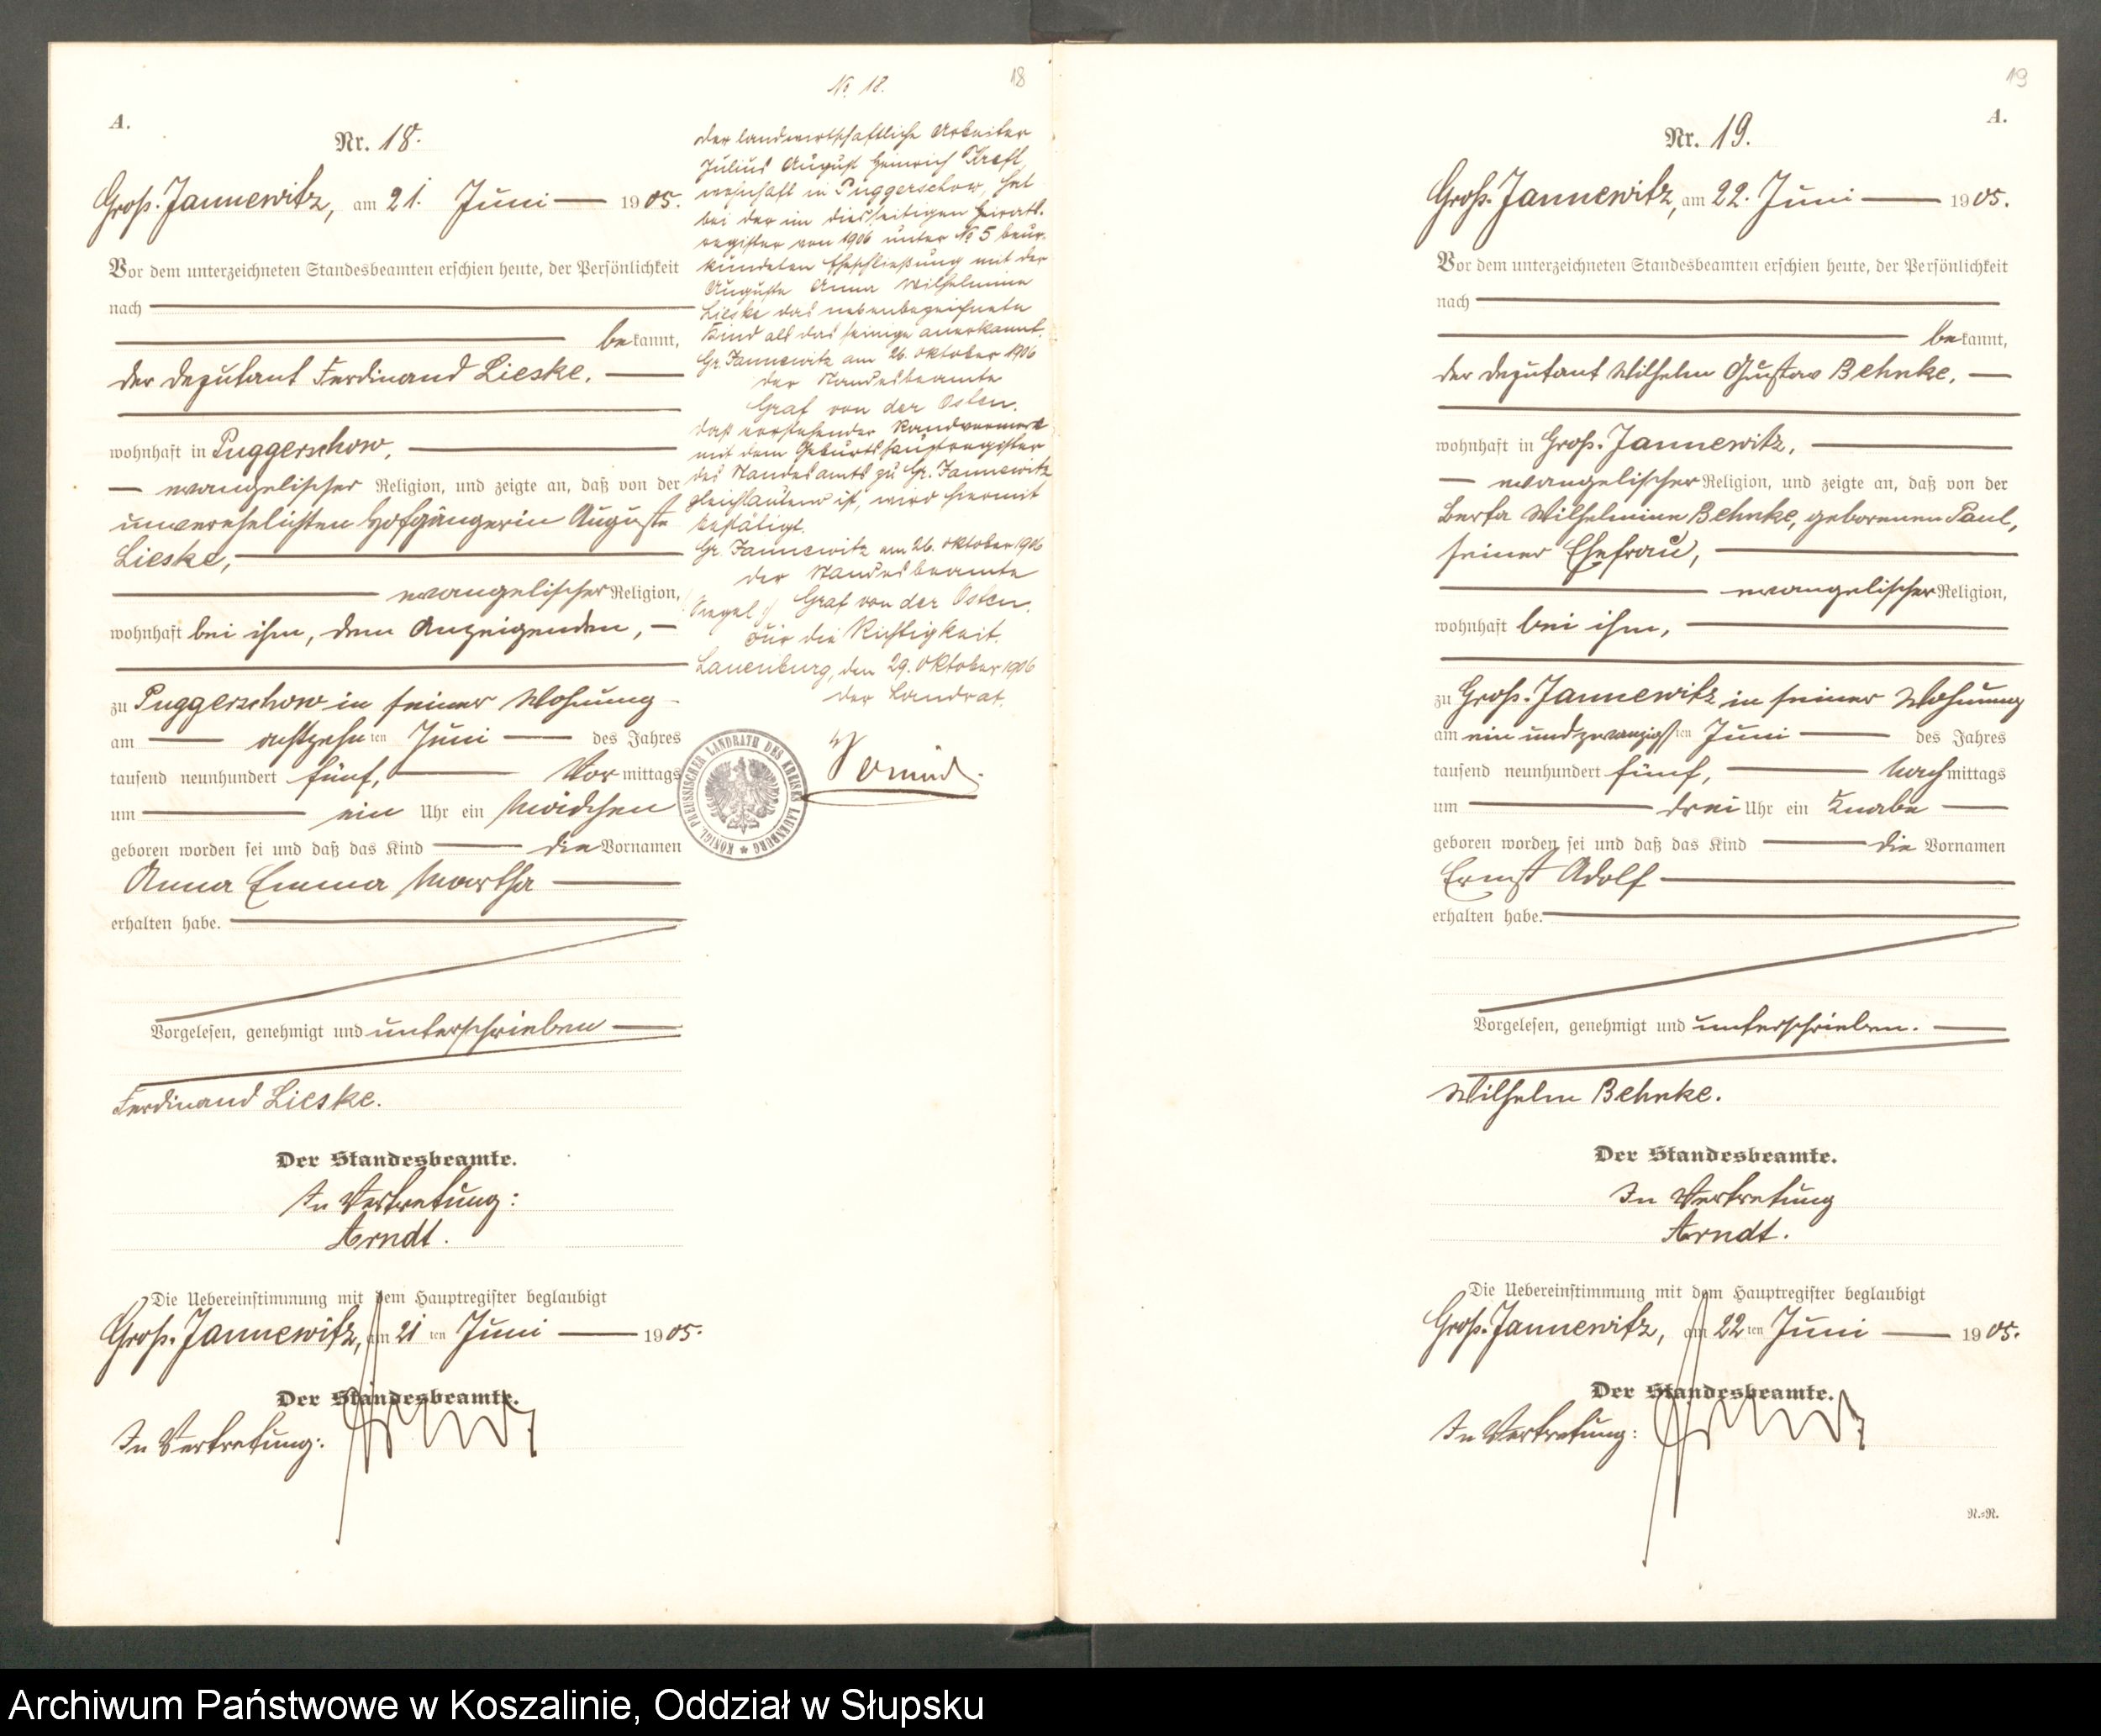 A.
Nr. 18.
Groß-Jannewitz, am 21. Juni 1905.
Vor dem unterzeichneten Standesbeamten erschien heute, der Persönlichkeit
nach
bekannt,
der Deputant Ferdinand Lieske.
wohnhaft in Puggerschow,
evangelischer Religion, und zeigte an, daß von der
unverehelichten Hofgängerin Auguste
Lieske,
evangelischer Religion,
wohnhaft bei ihm, dem Anzeigenden,
zu Puggerschow in seiner Wohnung
am achtzehnten Juni des Jahres
tausend neunhundert fünf, Vormittags
um ein Uhr ein Mädchen
geboren worden sei und daß das Kind die Vornamen
Anna Emma Martha
erhalten habe.
Vorgelesen, genehmigt und unterschrieben
Ferdinand Lieske.
Der Standesbeamte.
In Vertretung:
Arndt.
Die Uebereinstimmung mit dem Hauptregister beglaubigt
Groß-Jannewitz, am 21ten Juni 1905.
Der Standesbeamte.
In Vertretung:
18
No. 18.
Der landwirtschaftliche Arbeiter
Julius August Heinrich Kreft,
wohnhaft in Puggerschow, hat
bei der im diesseitigen Heirats-
register von 1906 unter No 5 beur-
kundeten Eheschließung mit der
Auguste Anna Wilhelmine
Lieske das nebenbezeichnete
Kind als das seinige anerkannt.
Gr. Jannewitz am 26. Oktober 1906
Der Standesbeamte
Graf von der Osten.
Daß vorstehender Randvermerk
mit dem Geburtshauptregister
des Standesamts zu Gr. Jannewitz
gleichlautend ist, wird hiermit
bestätigt.
Gr. Jannewitz am 26. Oktober 1906
Der Standesbeamte
Siegel Graf von der Osten.
Für die Richtigkeit.
Lauenburg, den 29. Oktober 1906
Der Landrat.
KÖNIGL. PREUSSISCHER LANDRATH DES KREISES LAUENBURG
19
A.
Nr. 19.
Groß-Jannewitz, am 22. Juni 1905.
Vor dem unterzeichneten Standesbeamten erschien heute, der Persönlichkeit
nach
bekannt,
der Deputant Wilhelm Gustav Behnke,
wohnhaft in Groß-Jannewitz,
evangelischer Religion, und zeigte an, daß von der
Berta Wilhelmine Behnke, geborenen Paul,
seiner Ehefrau,
evangelischer Religion,
wohnhaft bei ihm,
zu Groß-Jannewitz in seiner Wohnung
am ein und zwanzigsten Juni des Jahres
tausend neunhundert fünf, Nachmittags
um drei Uhr ein Knabe
geboren worden sei und daß das Kind die Vornamen
Ernst Adolf
erhalten habe.
Vorgelesen, genehmigt und unterschrieben.
Wilhelm Behnke.
Der Standesbeamte.
In Vertretung
Arndt.
Die Uebereinstimmung mit dem Hauptregister beglaubigt
Groß-Jannewitz, am 22ten Juni 1905.
Der Standesbeamte.
In Vertretung:
N.=N.
Archiwum Państwowe w Koszalinie, Oddział w Słupsku